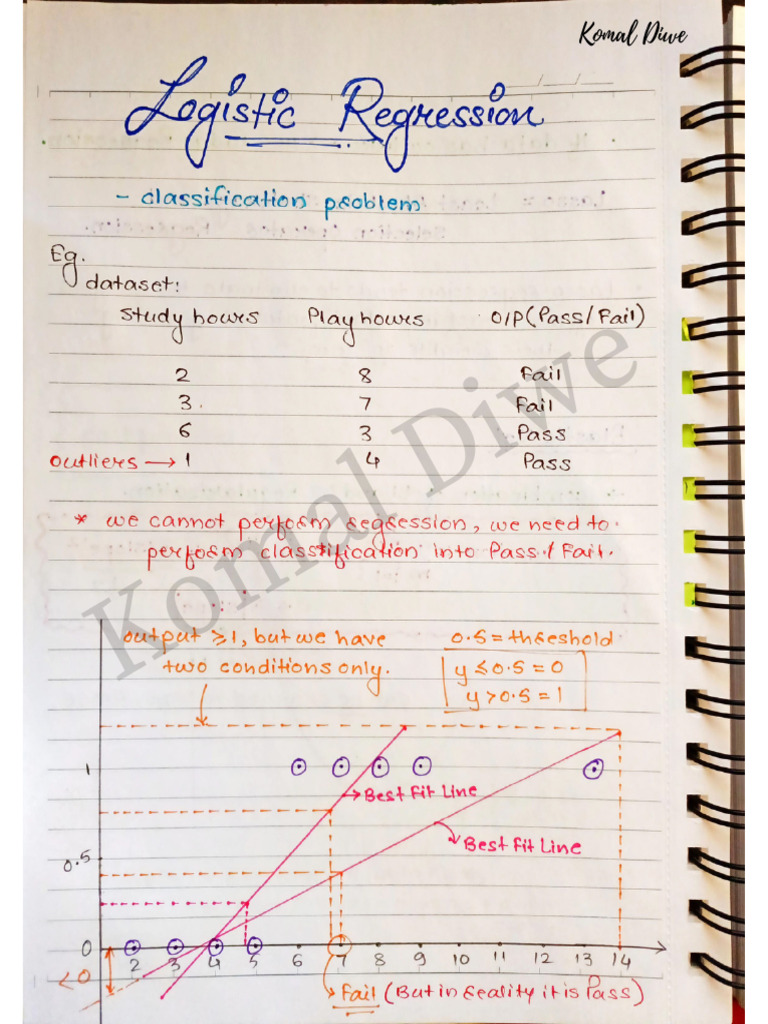 Komal Diwe
Logistic Regression
- classification problem
Eg.
dataset:
Study hours Play hours O/P (Pass/Fail)
2 8 Fail
3 7 Fail
6 3 Pass
outliers → 1 4 Pass
* we cannot perform regression, we need to
perform classification into Pass / Fail.
output ≥ 1, but we have
two conditions only.
0.5 = threshold
y ≤ 0.5 = 0
y > 0.5 = 1
1
→ Best Fit Line
Best Fit Line
0.5
0
2 3 4 5 6 7 8 9 10 11 12 13 14
<0
Fail (But in reality it is Pass)
Komal Diwe